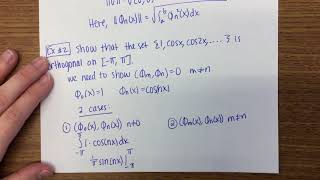 Here, ||Φn(x)|| = √∫ₐᵇ Φn²(x)dx
Ex #2 Show that the set {1, cosx, cos2x, .... } is
orthogonal on [-π, π].
we need to show (Φm, Φn)=0 m≠n
Φ₀(x)=1 Φn(x)=cos(nx)
2 cases:
① (Φ₀(x), Φn(x)) n≠0 ② (Φm(x), Φn(x)) m≠n
∫₋π^π 1·cos(nx)dx
1/n sin(nx)|₋π^π